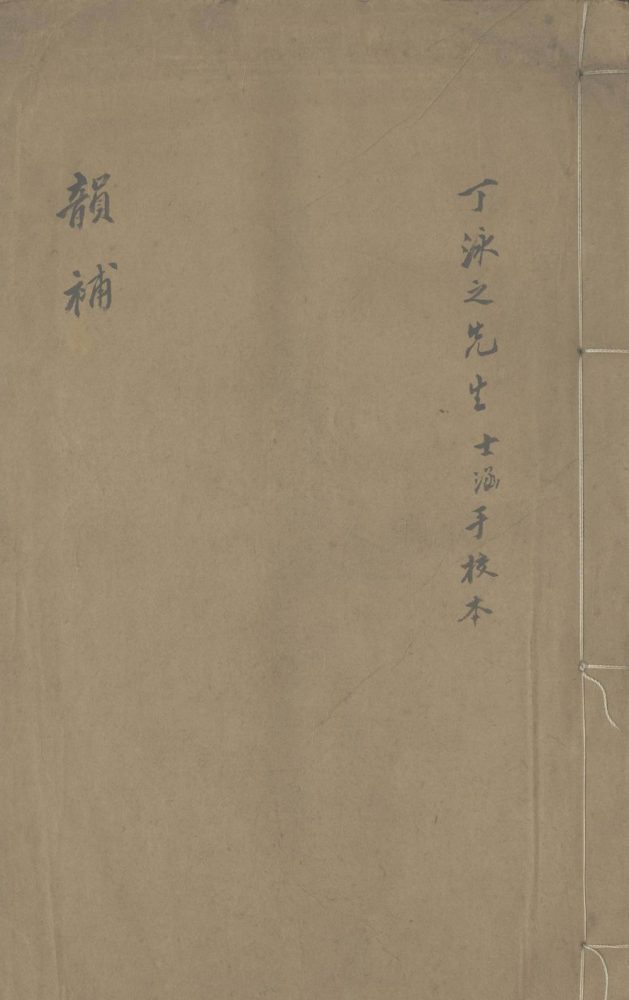 丁泳之先生士涵手校本
韻補